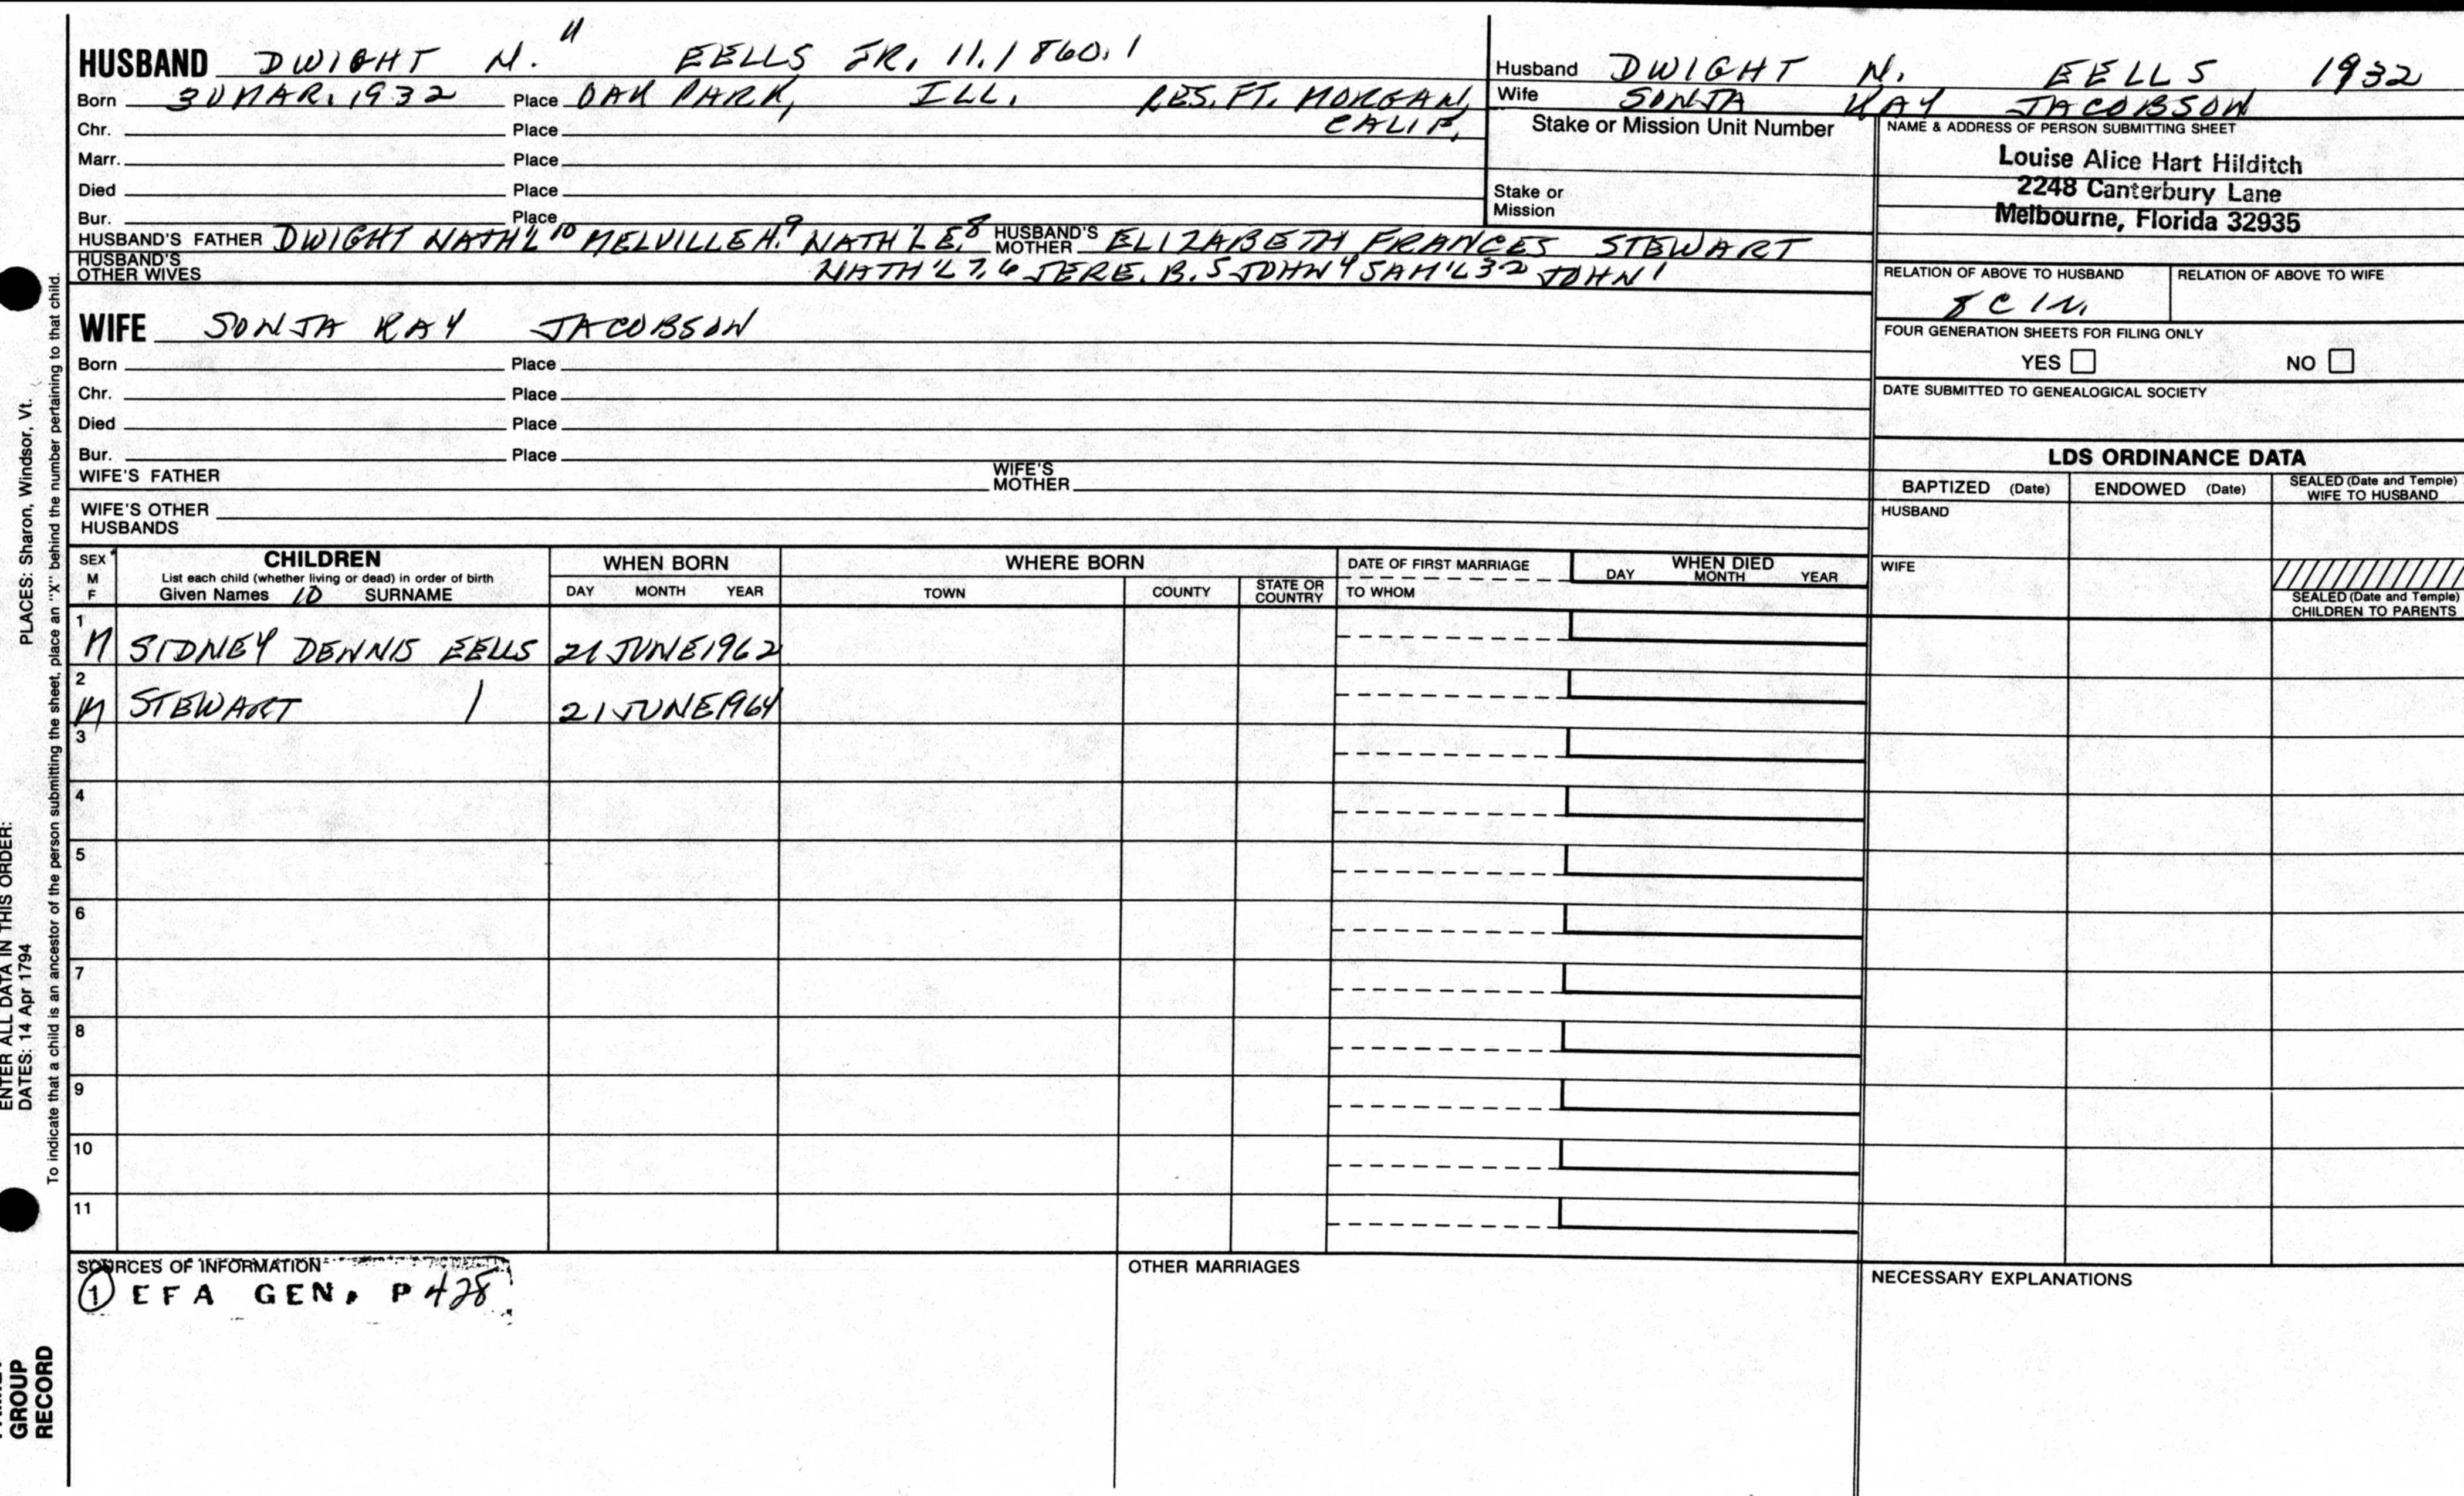 HUSBAND DWIGHT N. 11 EELLS JR. 11.1860.1
Born 30 MAR. 1932 Place OAK PARK, ILL. RES. FT. MORGAN,
CALIF.
Chr. Place
Marr. Place
Died Place
Bur. Place
HUSBAND'S FATHER DWIGHT NATH'L 10 MELVILLE H. 9 NATH'L E. 8 HUSBAND'S MOTHER ELIZABETH FRANCES STEWART
HUSBAND'S OTHER WIVES NATH'L 7, 6 JERE. B. 5 JOHN 4 SAM'L 3 2 JOHN 1
Husband DWIGHT N. EELLS 1932
Wife SONJA KAY JACOBSON
Stake or Mission Unit Number
Stake or
Mission
NAME & ADDRESS OF PERSON SUBMITTING SHEET
Louise Alice Hart Hilditch
2248 Canterbury Lane
Melbourne, Florida 32935
RELATION OF ABOVE TO HUSBAND RELATION OF ABOVE TO WIFE
8 C 1 R.
FOUR GENERATION SHEETS FOR FILING ONLY
YES NO
DATE SUBMITTED TO GENEALOGICAL SOCIETY
WIFE SONJA KAY JACOBSON
Born Place
Chr. Place
Died Place
Bur. Place
WIFE'S FATHER WIFE'S MOTHER
WIFE'S OTHER
HUSBANDS
LDS ORDINANCE DATA
BAPTIZED (Date) ENDOWED (Date) SEALED (Date and Temple) WIFE TO HUSBAND
HUSBAND
WIFE
SEALED (Date and Temple)
CHILDREN TO PARENTS
SEX
M
F
CHILDREN
List each child (whether living or dead) in order of birth
Given Names 10 SURNAME
WHEN BORN
DAY MONTH YEAR
WHERE BORN
TOWN COUNTY STATE OR COUNTRY
DATE OF FIRST MARRIAGE
TO WHOM
WHEN DIED
DAY MONTH YEAR
1
M SIDNEY DENNIS EELLS 21 JUNE 1962
2
M STEWART 21 JUNE 1964
3
4
5
6
7
8
9
10
11
SOURCES OF INFORMATION
1 EFA GEN. P 428
OTHER MARRIAGES
NECESSARY EXPLANATIONS
ENTER ALL DATA IN THIS ORDER:
DATES: 14 Apr 1794 PLACES: Sharon, Windsor, Vt.
To indicate that a child is an ancestor of the person submitting the sheet, place an "X" behind the number pertaining to that child.
GROUP
RECORD